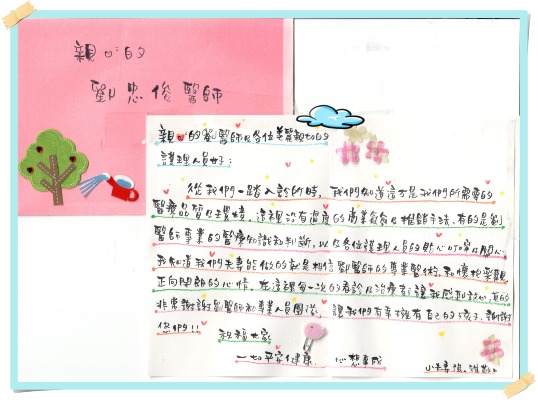 親心的
劉忠俊醫師
親心的劉醫師及各位美麗親切的
護理人員好:
從我們一踏入診所時,我們知道這方是我們所需要的
醫療品質及環境,這裡沒有濕度的商業氣息推銷手法,有的是劉
醫師專業的醫療知識和判斷,以及各位護理人員的照心叮嚀&關心
我知道我們夫妻能做的就是相信劉醫師的專業技術,和懷抱樂觀
正向開朗的心情,在這裡每一次的看診及治療都讓我感到放心,真的
非常謝謝劉醫師和專業人員團隊,讓我們有幸擁有自己的孩子,謝謝
您們!!
祝福大家
一切平安健康 心想事成